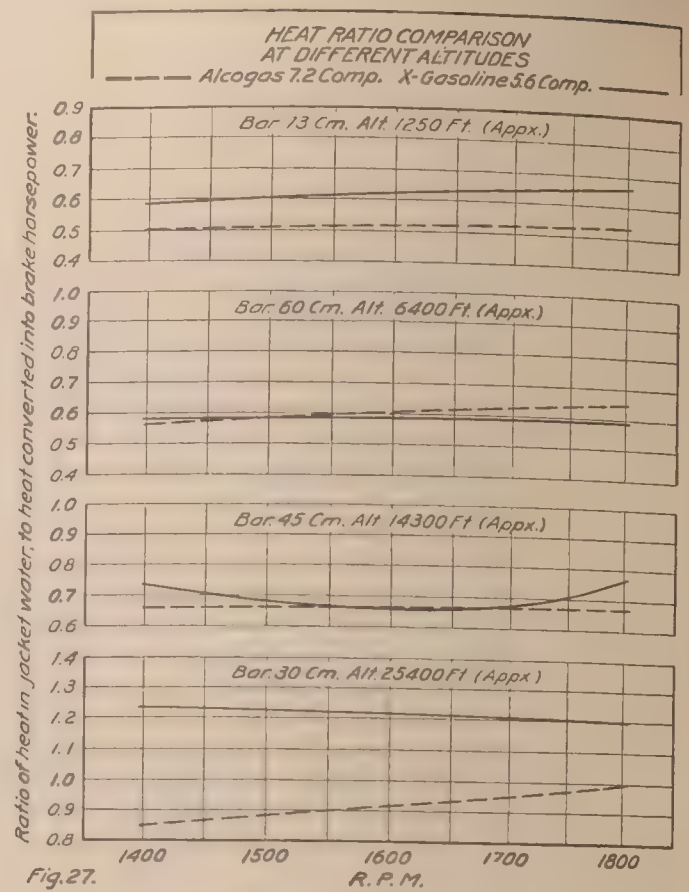 HEAT RATIO COMPARISON
AT DIFFERENT ALTITUDES
Alcogas 7.2 Comp. X-Gasoline 5.6 Comp.
Ratio of heat in jacket water, to heat converted into brake horsepower.
Bar. 73 Cm. Alt. 1250 Ft. (Appx.)
0.9
0.8
0.7
0.6
0.5
0.4
Bar. 60 Cm. Alt. 6400 Ft. (Appx.)
1.0
0.9
0.8
0.7
0.6
0.5
0.4
Bar. 45 Cm. Alt. 14300 Ft (Appx.)
1.0
0.9
0.8
0.7
0.6
Bar. 30 Cm. Alt. 25400 Ft (Appx.)
1.4
1.3
1.2
1.1
1.0
0.9
0.8
1400 1500 1600 1700 1800
R.P.M.
Fig. 27.